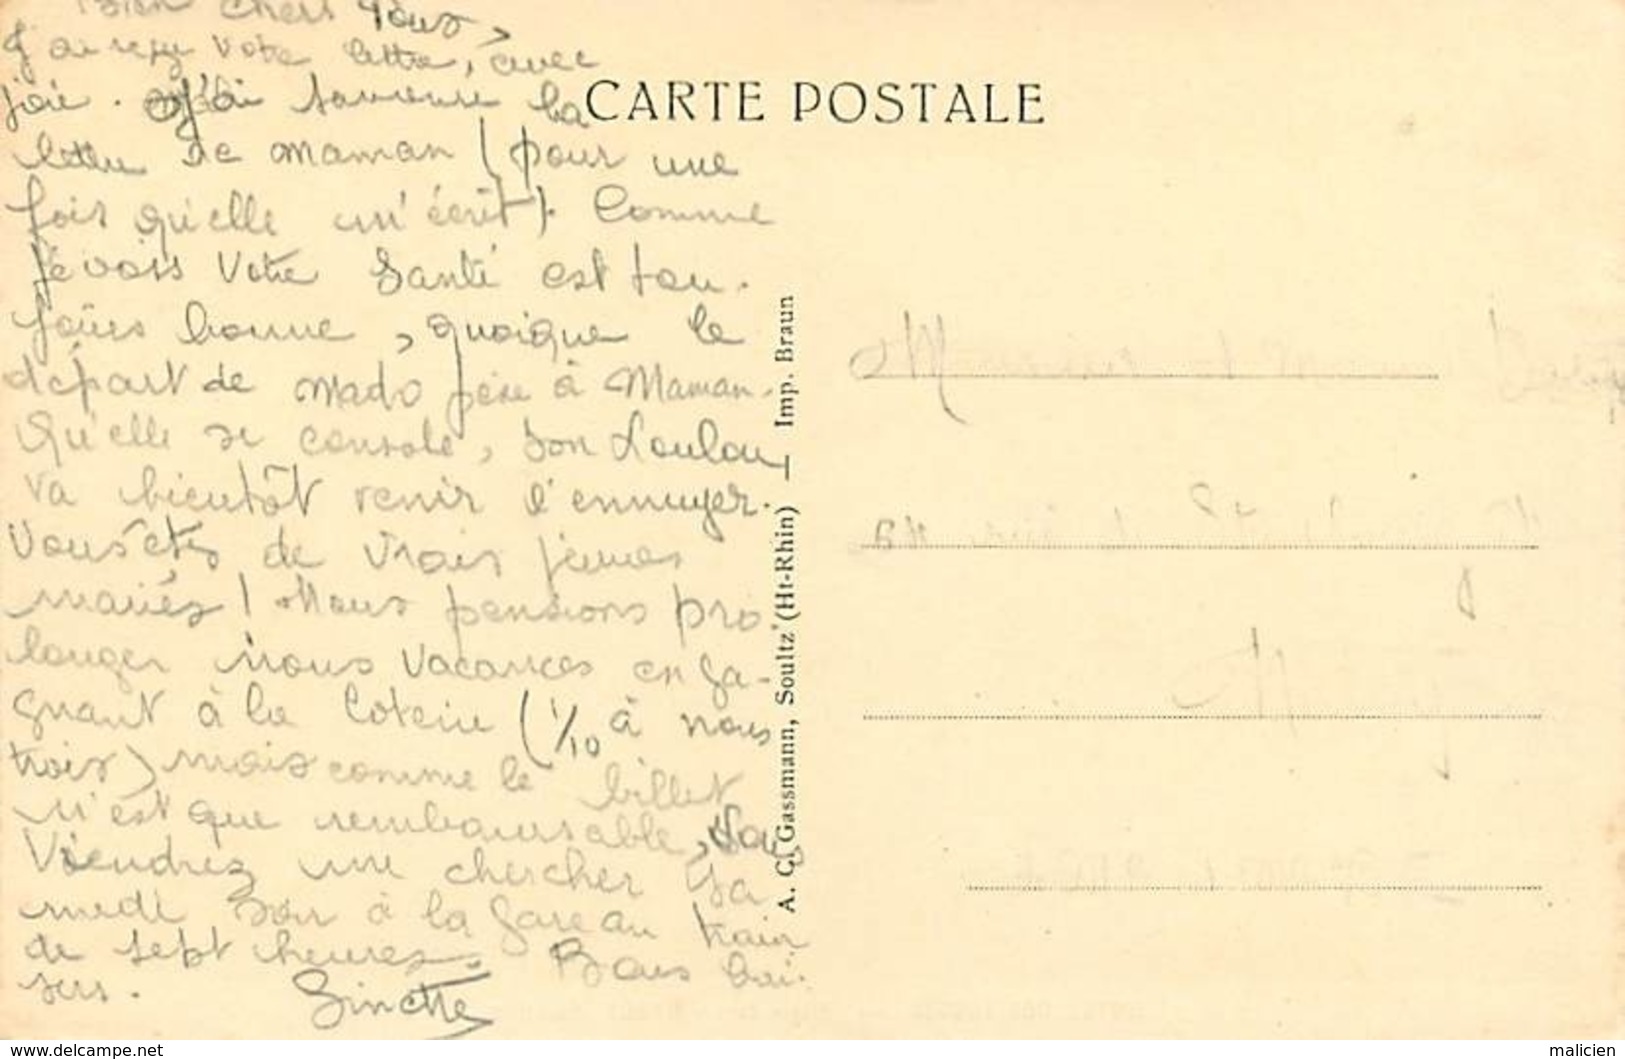 Bien chers tous,
J'ai reçu votre lettre, avec
joie. J'ai savouré la
lettre de maman (pour une
fois qu'elle m'écrit). Comme
je vois votre santé est tou-
jours bonne, quoique le
départ de Mado pèse à Maman.
Qu'elle se console, son Loulou
va bientôt venir l'ennuyer.
Vous êtes de vrais jeunes
mariés! Nous pensions pro-
longer nous vacances en ga-
gnant à la loterie (1/10 à nous
trois) mais comme le billet
n'est que remboursable, vous
viendrez me chercher sa-
medi soir à la gare au train
de sept heures. Bons bai-
sers. Ginette
CARTE POSTALE
A. C. Gassmann, Soultz (Ht-Rhin) — Imp. Braun
M
www.delcampe.net
malicien